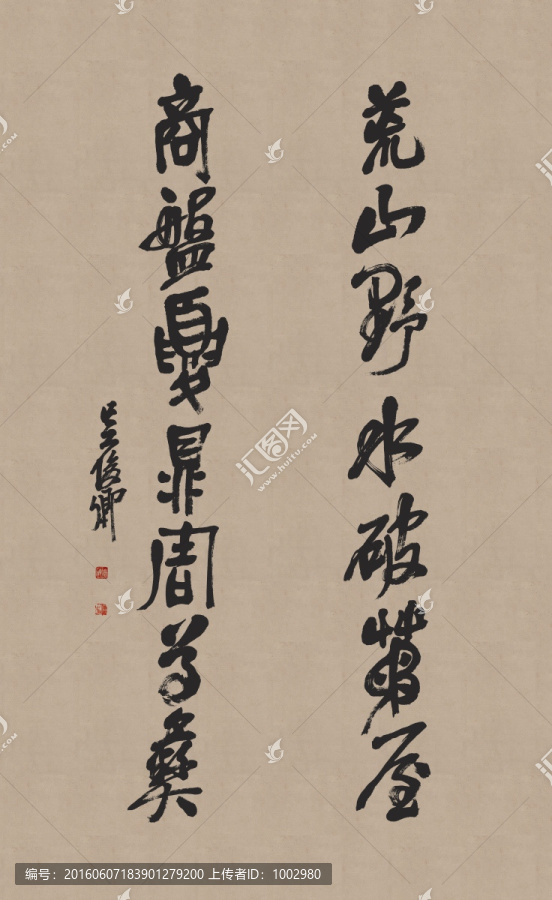 荒山野水破茅屋
商盤夏鼎周尊彝
吴俊卿
汇图网
www.huitu.com
编号：20160607183901279200 上传者ID：1002980